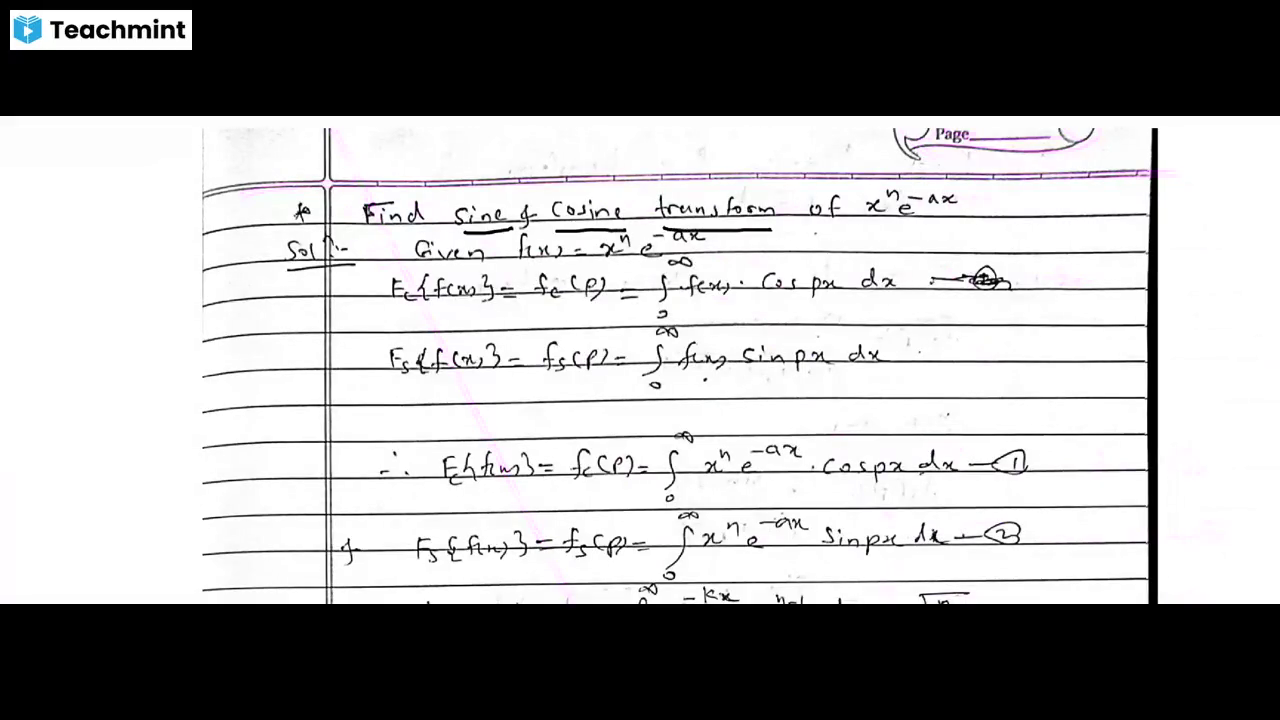 Teachmint
Page
* Find sine & Cosine transform of xⁿe^-ax
Solⁿ:- Given f(x) = xⁿ e^-ax
Fc{f(x)} = fc(p) = ∫₀^∞ f(x). Cos px dx
Fs{f(x)} = fs(p) = ∫₀^∞ f(x) sinpx dx
∴ Fc{f(x)} = fc(p) = ∫₀^∞ xⁿ e^-ax . cospx dx —①
& Fs{f(x)} = fs(p) = ∫₀^∞ xⁿ e^-ax sinpx dx —②
∞ -kx n-1